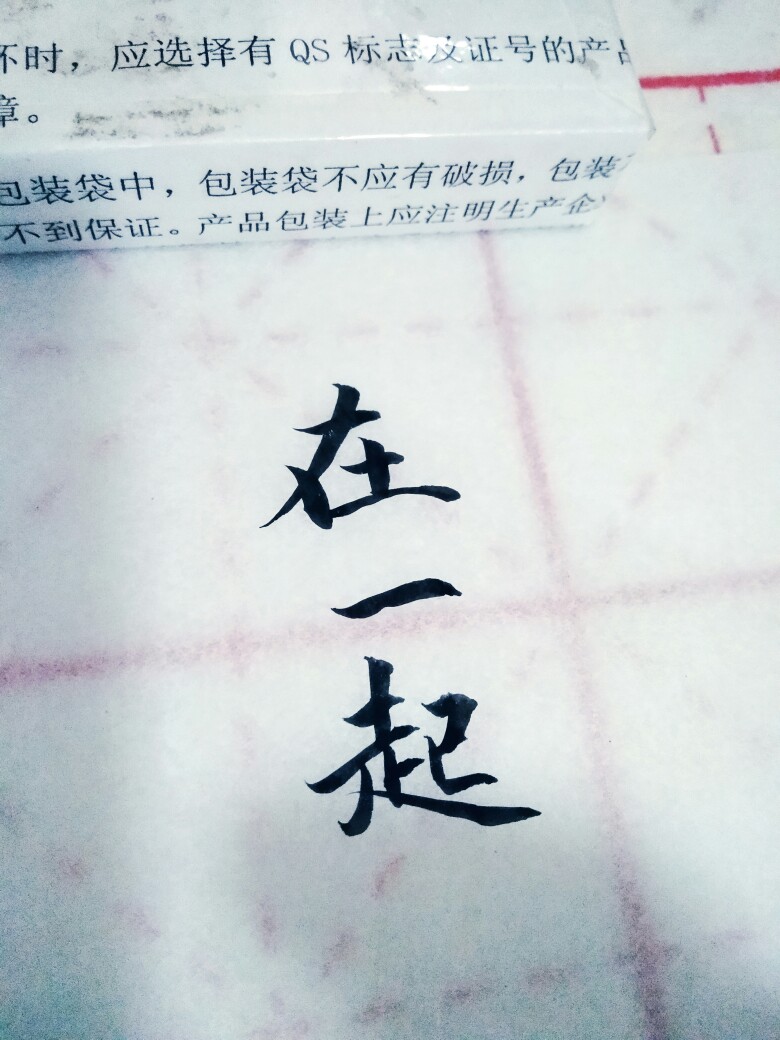 时，应选择有 QS 标志及证号的产品
章。
包装袋中，包装袋不应有破损，包装
不到保证。产品包装上应注明生产企
在
一
起